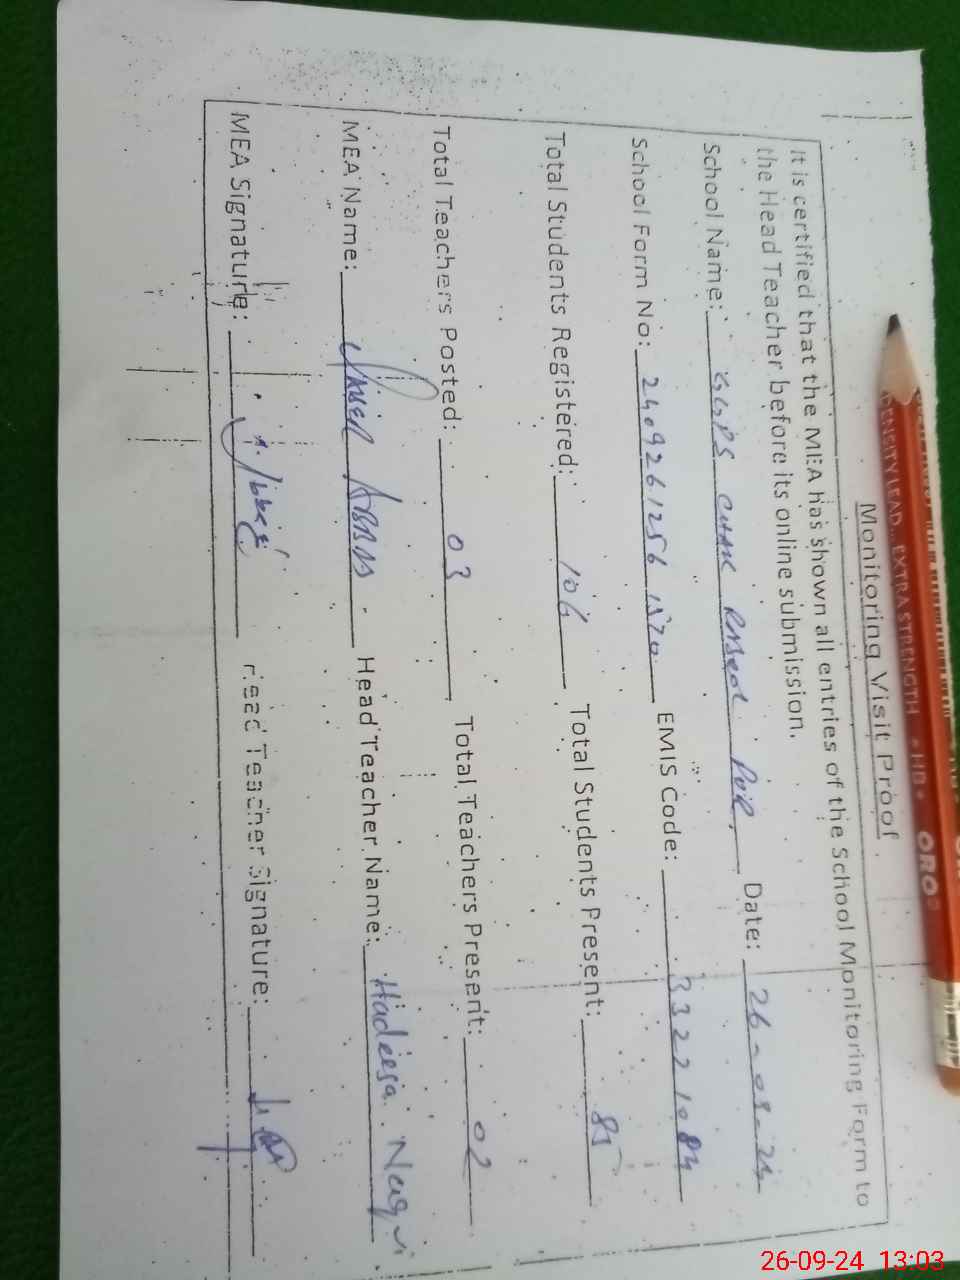 Monitoring Visit Proof
It is certified that the MEA has shown all entries of the School Monitoring Form to
the Head Teacher before its online submission.
School Name: GGPS CHAK RASOOL PUR, Date: 26-09-24
School Form No: 240926 1256 1570 EMIS Code: 33221084
Total Students Registered: 106 Total Students Present: 85
Total Teachers Posted: 03 Total Teachers Present: 02
MEA Name: ABBAS Head Teacher Name: Hadeesa Naqvi
MEA Signature: Head Teacher Signature:
EXTRA STRENGTH HB ORO
26-09-24 13:03